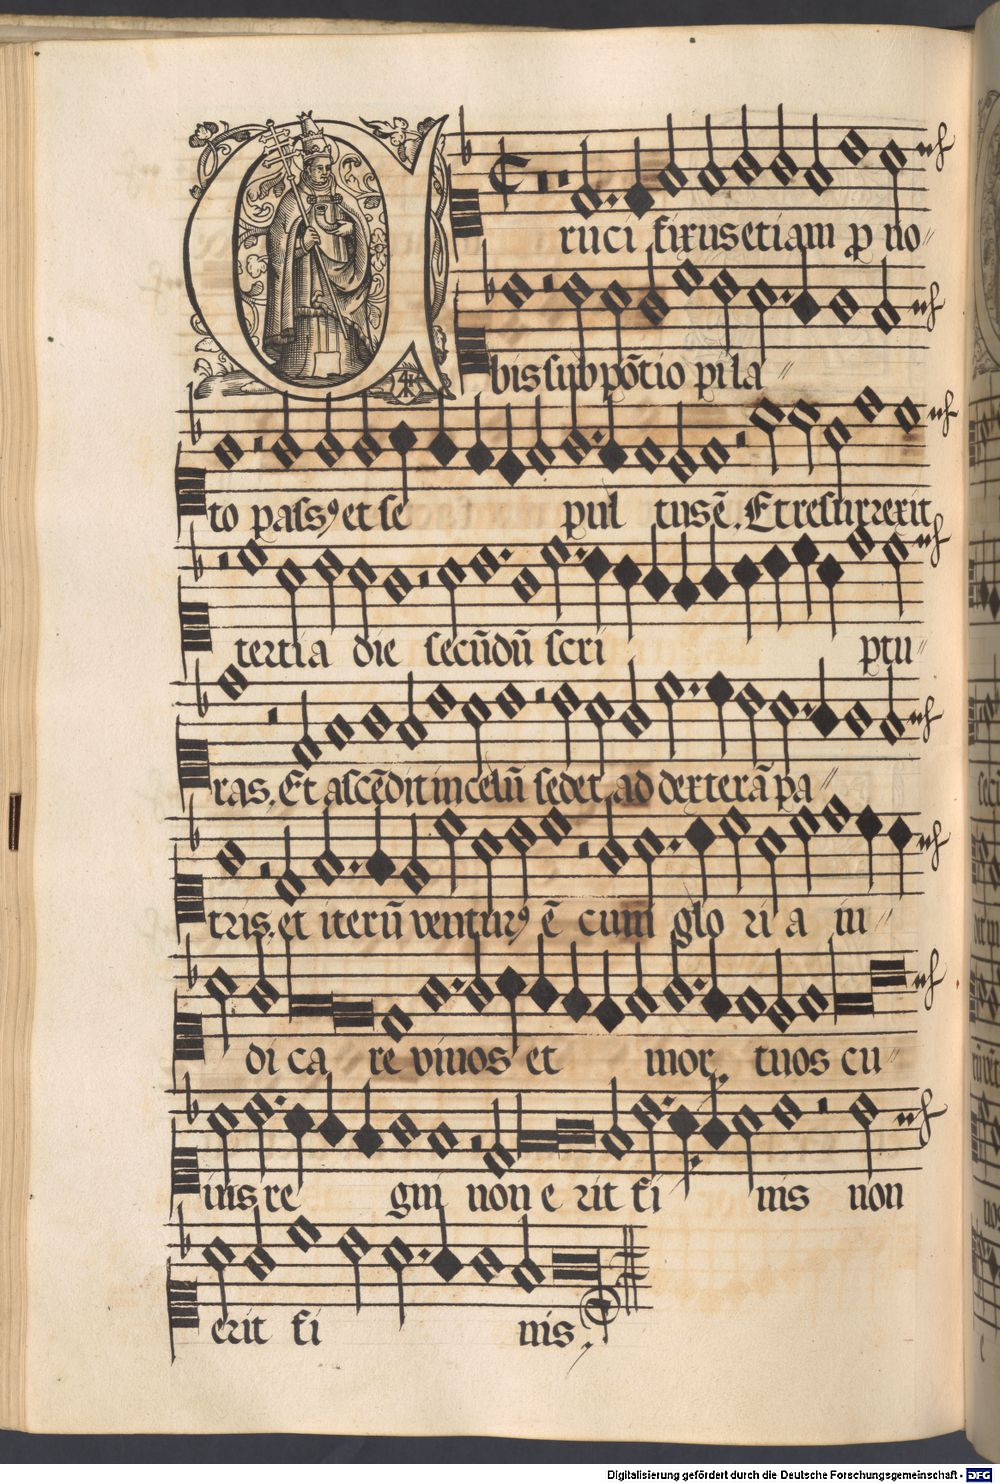 C ruci fixus etiam ꝑ no〃
bis sub põtio pi la〃
to passꝰ et se pul tus ẽ. Et resurrexit
tertia die secũdũ scri ptu〃
ras. Et ascẽdit in celũ sedet ad dexterã pa〃
tris, et iterũ venturꝰ ẽ cum glo ri a iu〃
di ca re viuos et mor tuos cu〃
ius re gni non e rit fi nis non
erit fi nis.
Digitalisierung gefördert durch die Deutsche Forschungsgemeinschaft - DFG